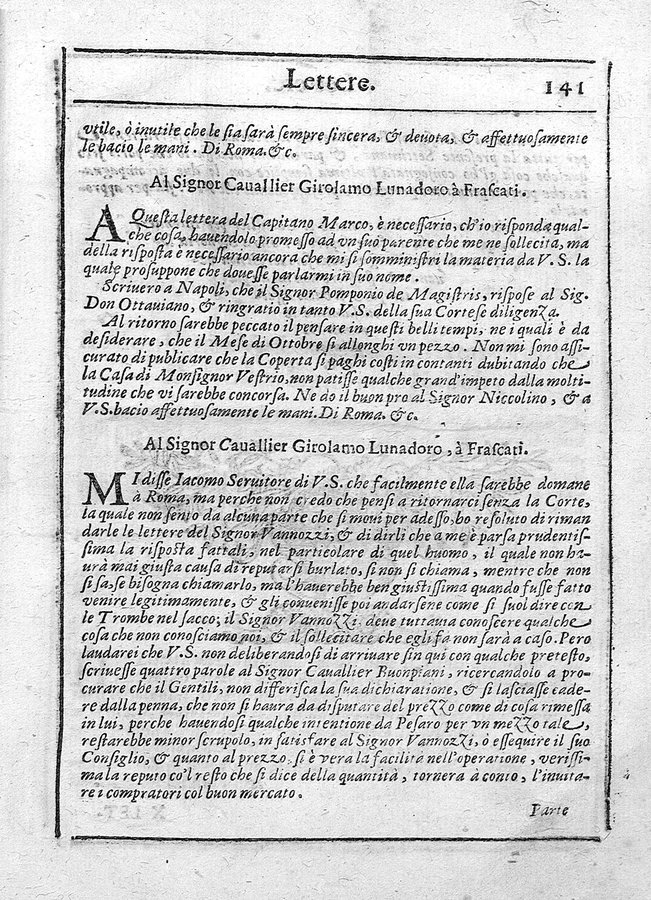 Lettere. 141
vtile, ò inutile che le sia sarà sempre sincera, & deuota, & affettuosamente
le bacio le mani. Di Roma. &c.
Al Signor Cauallier Girolamo Lunadoro à Frascati.
A Questa lettera del Capitano Marco, è necessario, ch'io risponda qual-
che cosa, hauendolo promesso ad vn suo parente che me ne sollecita, ma
della risposta è necessario ancora che mi si somministri la materia da V. S. la
quale prosuppone che douesse parlarmi in suo nome.
Scriuero a Napoli, che il Signor Pomponio de Magistris, rispose al Sig.
Don Ottauiano, & ringratio in tanto V. S. della sua Cortese diligenza.
Al ritorno sarebbe peccato il pensare in questi belli tempi, ne i quali è da
desiderare, che il Mese di Ottobre si allonghi vn pezzo. Non mi sono assi-
curato di publicare che la Coperta si paghi costi in contanti dubitando che
la Casa di Monsignor Vestrio, non patisse qualche grand'impeto dalla molti-
tudine che vi sarebbe concorsa. Ne do il buon pro al Signor Niccolino, & a
V.S. bacio affettuosamente le mani. Di Roma. &c.
Al Signor Cauallier Girolamo Lunadoro, à Frascati.
MI disse Iacomo Seruitore di V.S. che facilmente ella sarebbe domane
à Roma, ma perche non credo che pensi a ritornarci senza la Corte,
la quale non sento da alcuna parte che si moui per adesso, ho resoluto di riman
darle le lettere del Signor Vannozzi, & di dirli che a me è parsa prudentis-
sima la risposta fattali, nel particolare di quel huomo, il quale non ha-
urà mai giusta causa di reputarsi burlato, si non si chiama, mentre che non
si sa, se bisogna chiamarlo, ma l'hauerebbe ben giustissima quando fusse fatto
venire legitimamente, & gli conuenisse poi andarsene come si suol dire con
le Trombe nel sacco; il Signor Vannozzi, deue tuttauia conoscere qualche
cosa che non conosciamo noi, & il sollecitare che egli fa non sarà a caso. Pero
laudarei che V.S. non deliberandosi di arriuare sin qui con qualche pretesto,
scriuesse quattro parole al Signor Cauallier Buonpiani, ricercandolo a pro-
curare che il Gentili, non differisca la sua dichiaratione, & si lasciasse cade-
re dalla penna, che non si haura da disputare del prezzo come di cosa rimessa
in lui, perche hauendosi qualche intentione da Pesaro per vn mezzo tale,
restarebbe minor scrupolo, in satisfare al Signor Vannozzi, ò essequire il suo
Consiglio, & quanto al prezzo si è vera la facilità nell'operatione, verissi-
ma la reputo co'l resto che si dice della quantità, tornera à conto, l'inuita-
re i compratori col buon mercato.
Parte